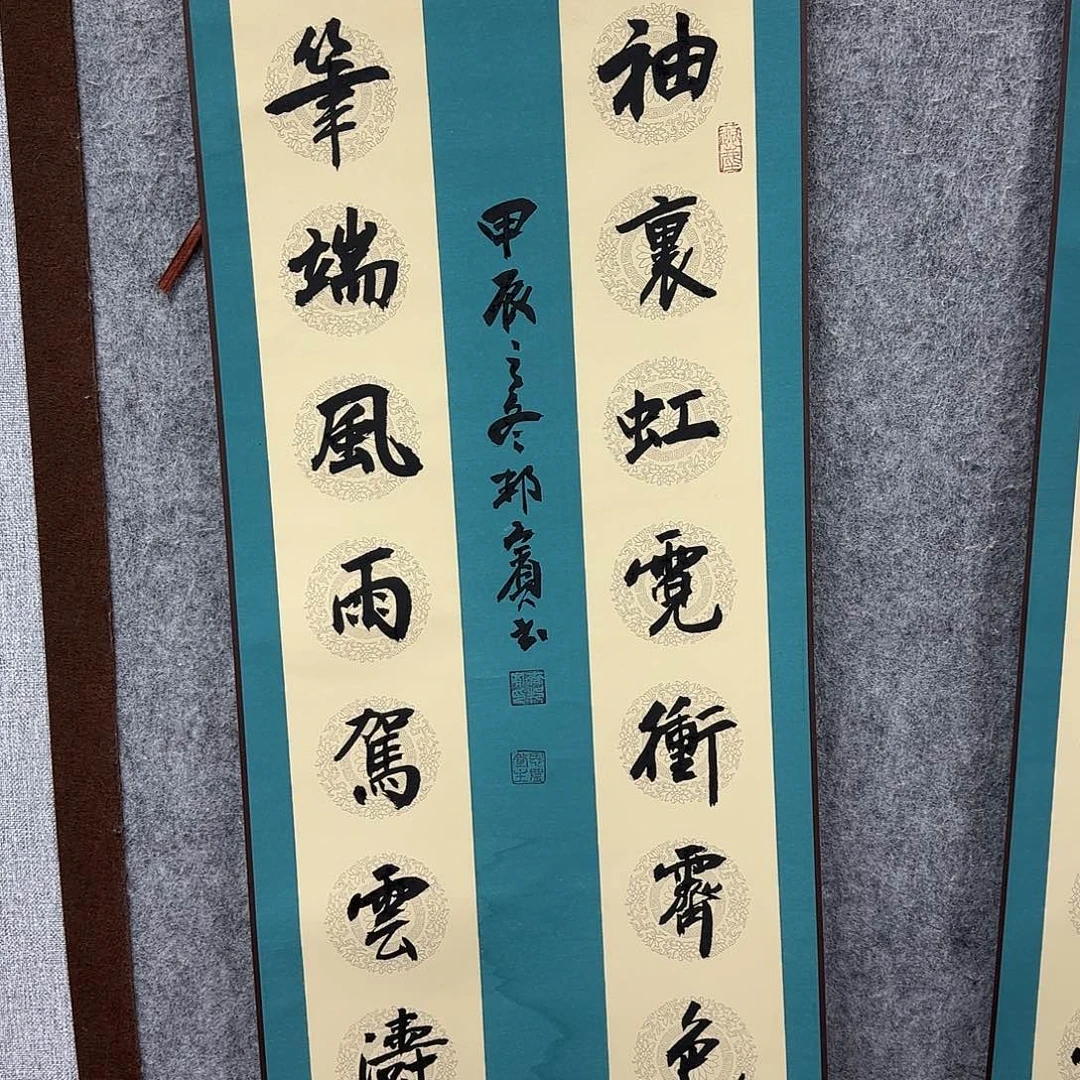 袖裏虹霓衝霽色
筆端風雨駕雲濤
甲辰之冬邦賓書